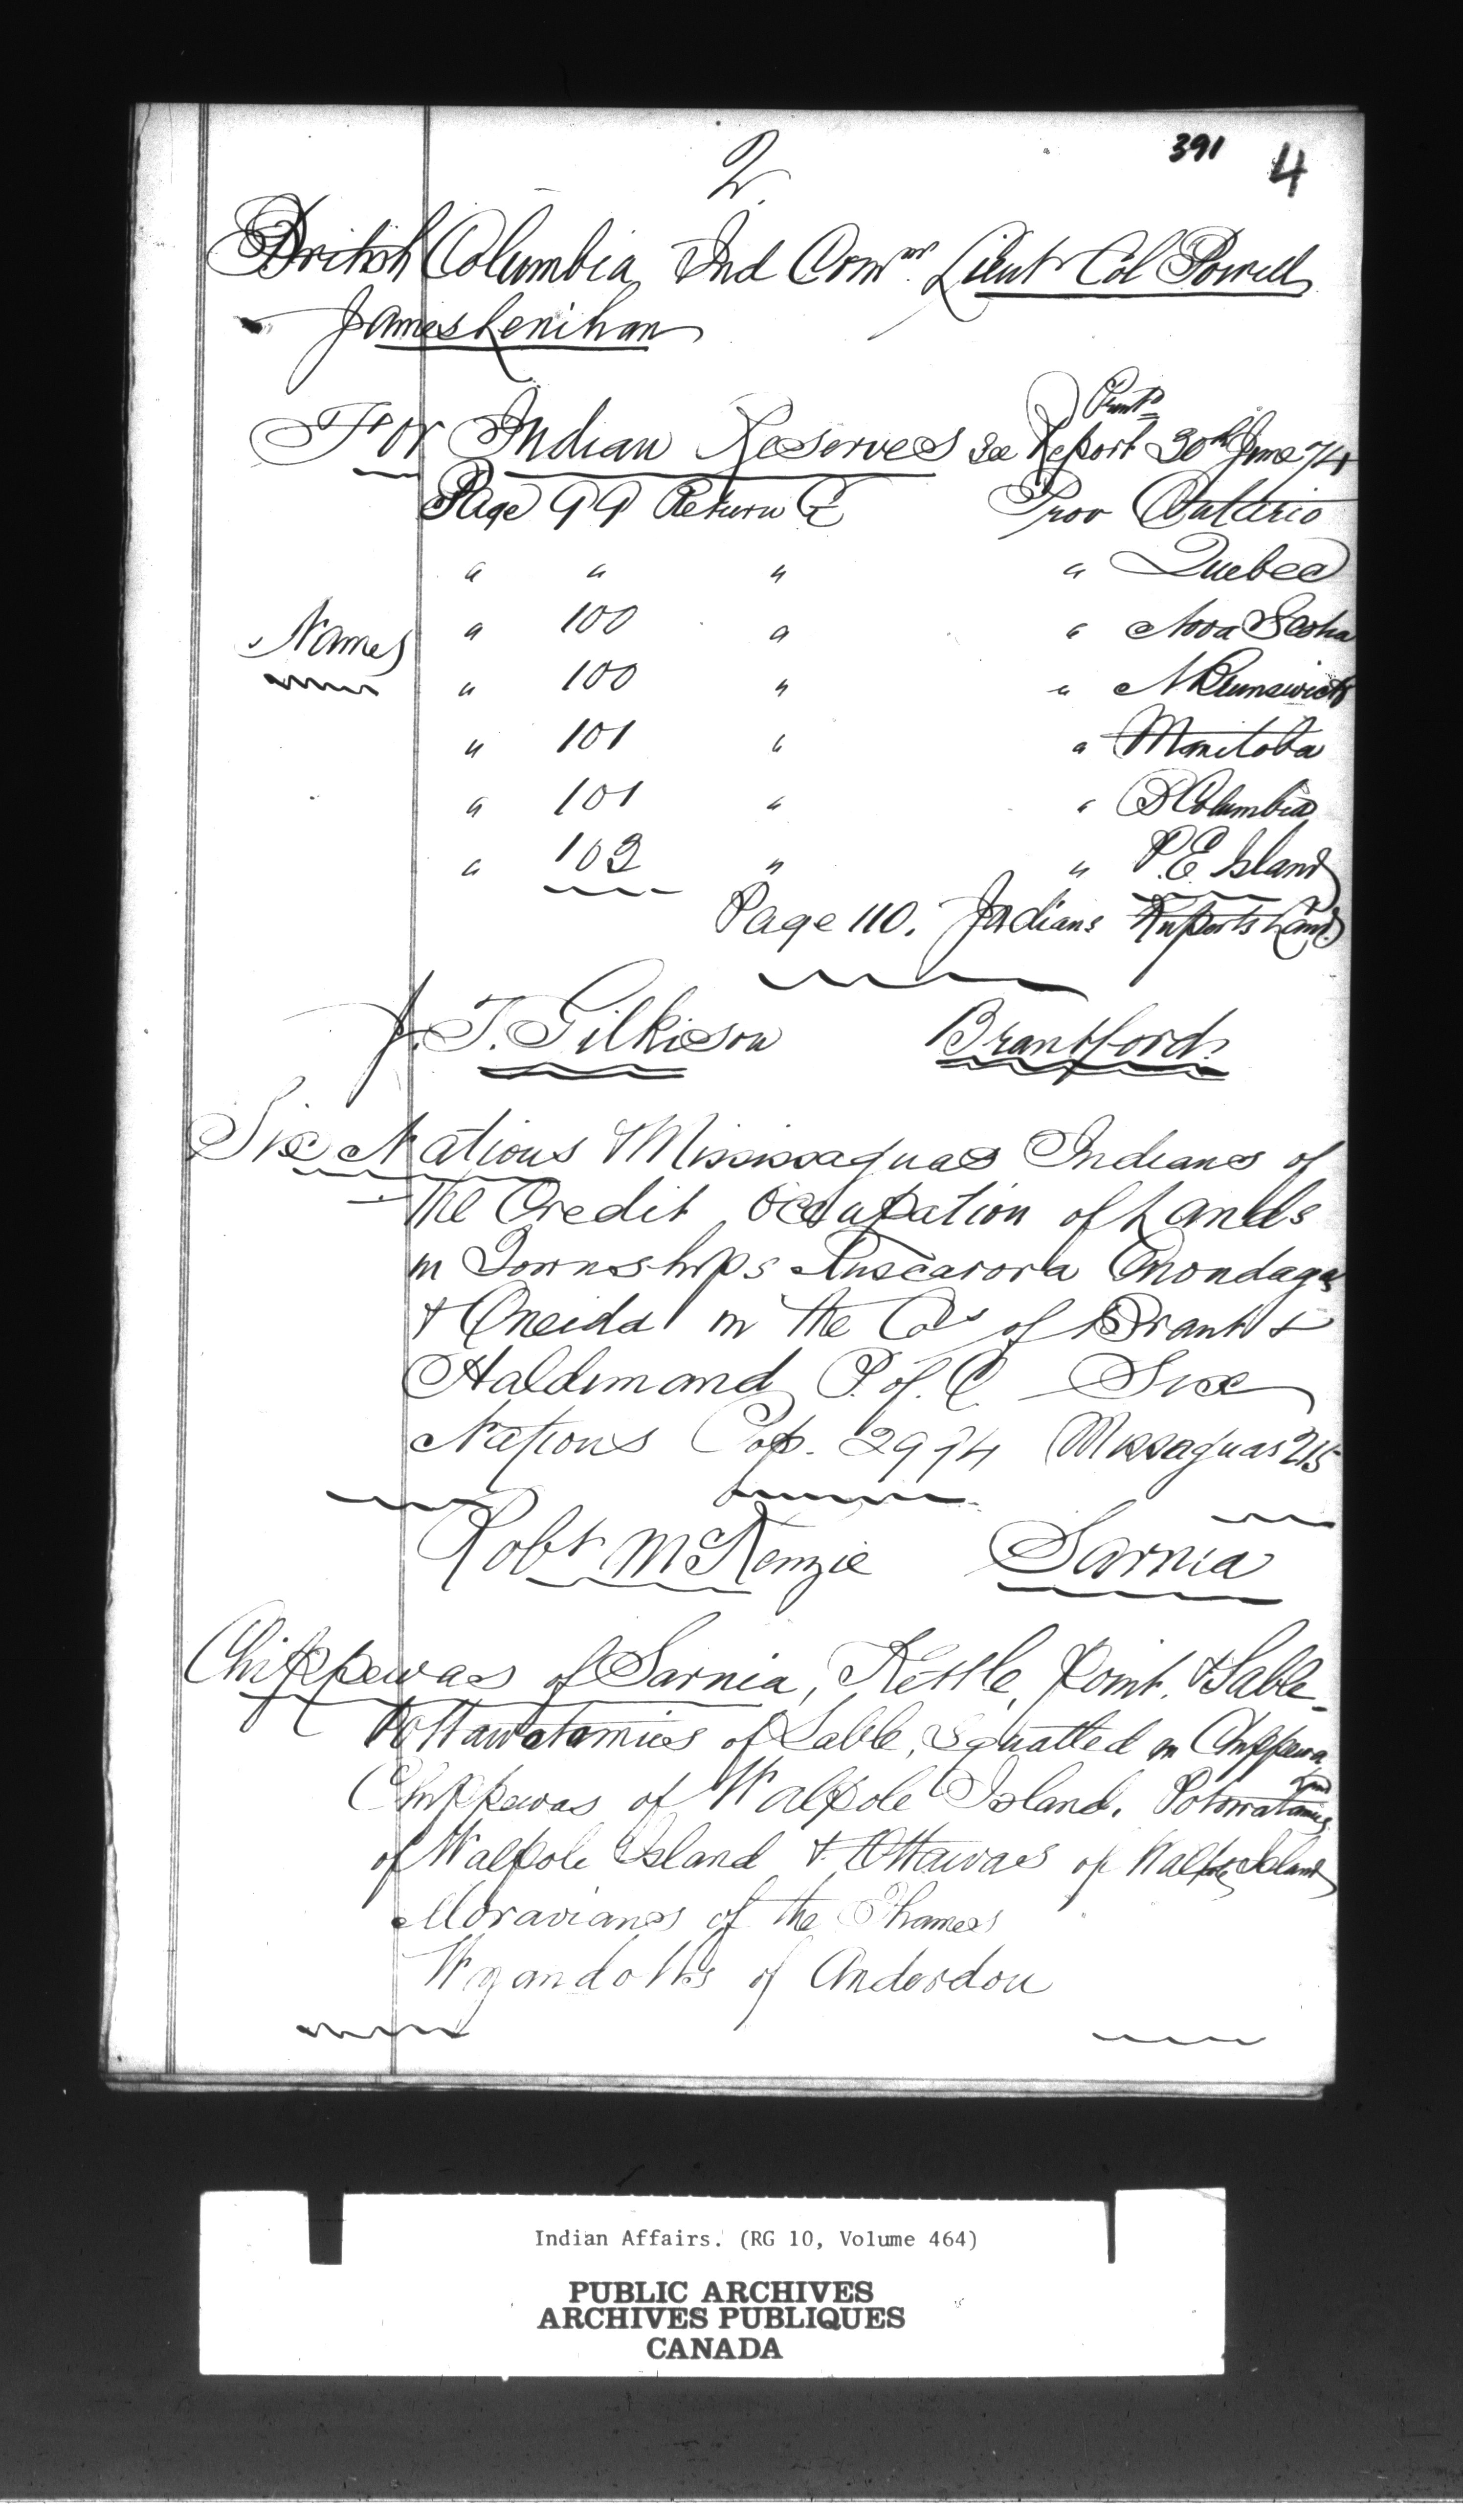 391 4
2.
British Columbia Ind Comr. Lieut Col Powell
James Lenihan
Print
For Indian Reserves see Report 30th June 74
Page 99 Return E Prov Ontario
" " " " Quebec
" 100 " " Nova Scotia
Names
" 100 " " N Brunswick
" 101 " " Manitoba
" 101 " " B Columbia
" 102 " " P.E. Island
Page 110. Indians Ruperts Land
J. T. Gilkison Brantford.
Six Nations & Mississaguas Indians of
the Credit occupation of Lands
in Townships Tuscarora Onondaga
& Oneida in the Cos of Brant &
Haldimand P. of. C. Six
Nations Pop. 2994 Missaguas 215
Robt McKenzie Sarnia
Chippewas of Sarnia, Kettle, Point. & Sable
Pottawatamies of Sable, Squatted on Chippewa
Land
Chippewas of Walpole Island. Potowatamies
of Walpole Island & Ottawas of Walpole Island
Moravians of the Thames
Wyandotts of Anderdon
Indian Affairs. (RG 10, Volume 464)
PUBLIC ARCHIVES
ARCHIVES PUBLIQUES
CANADA